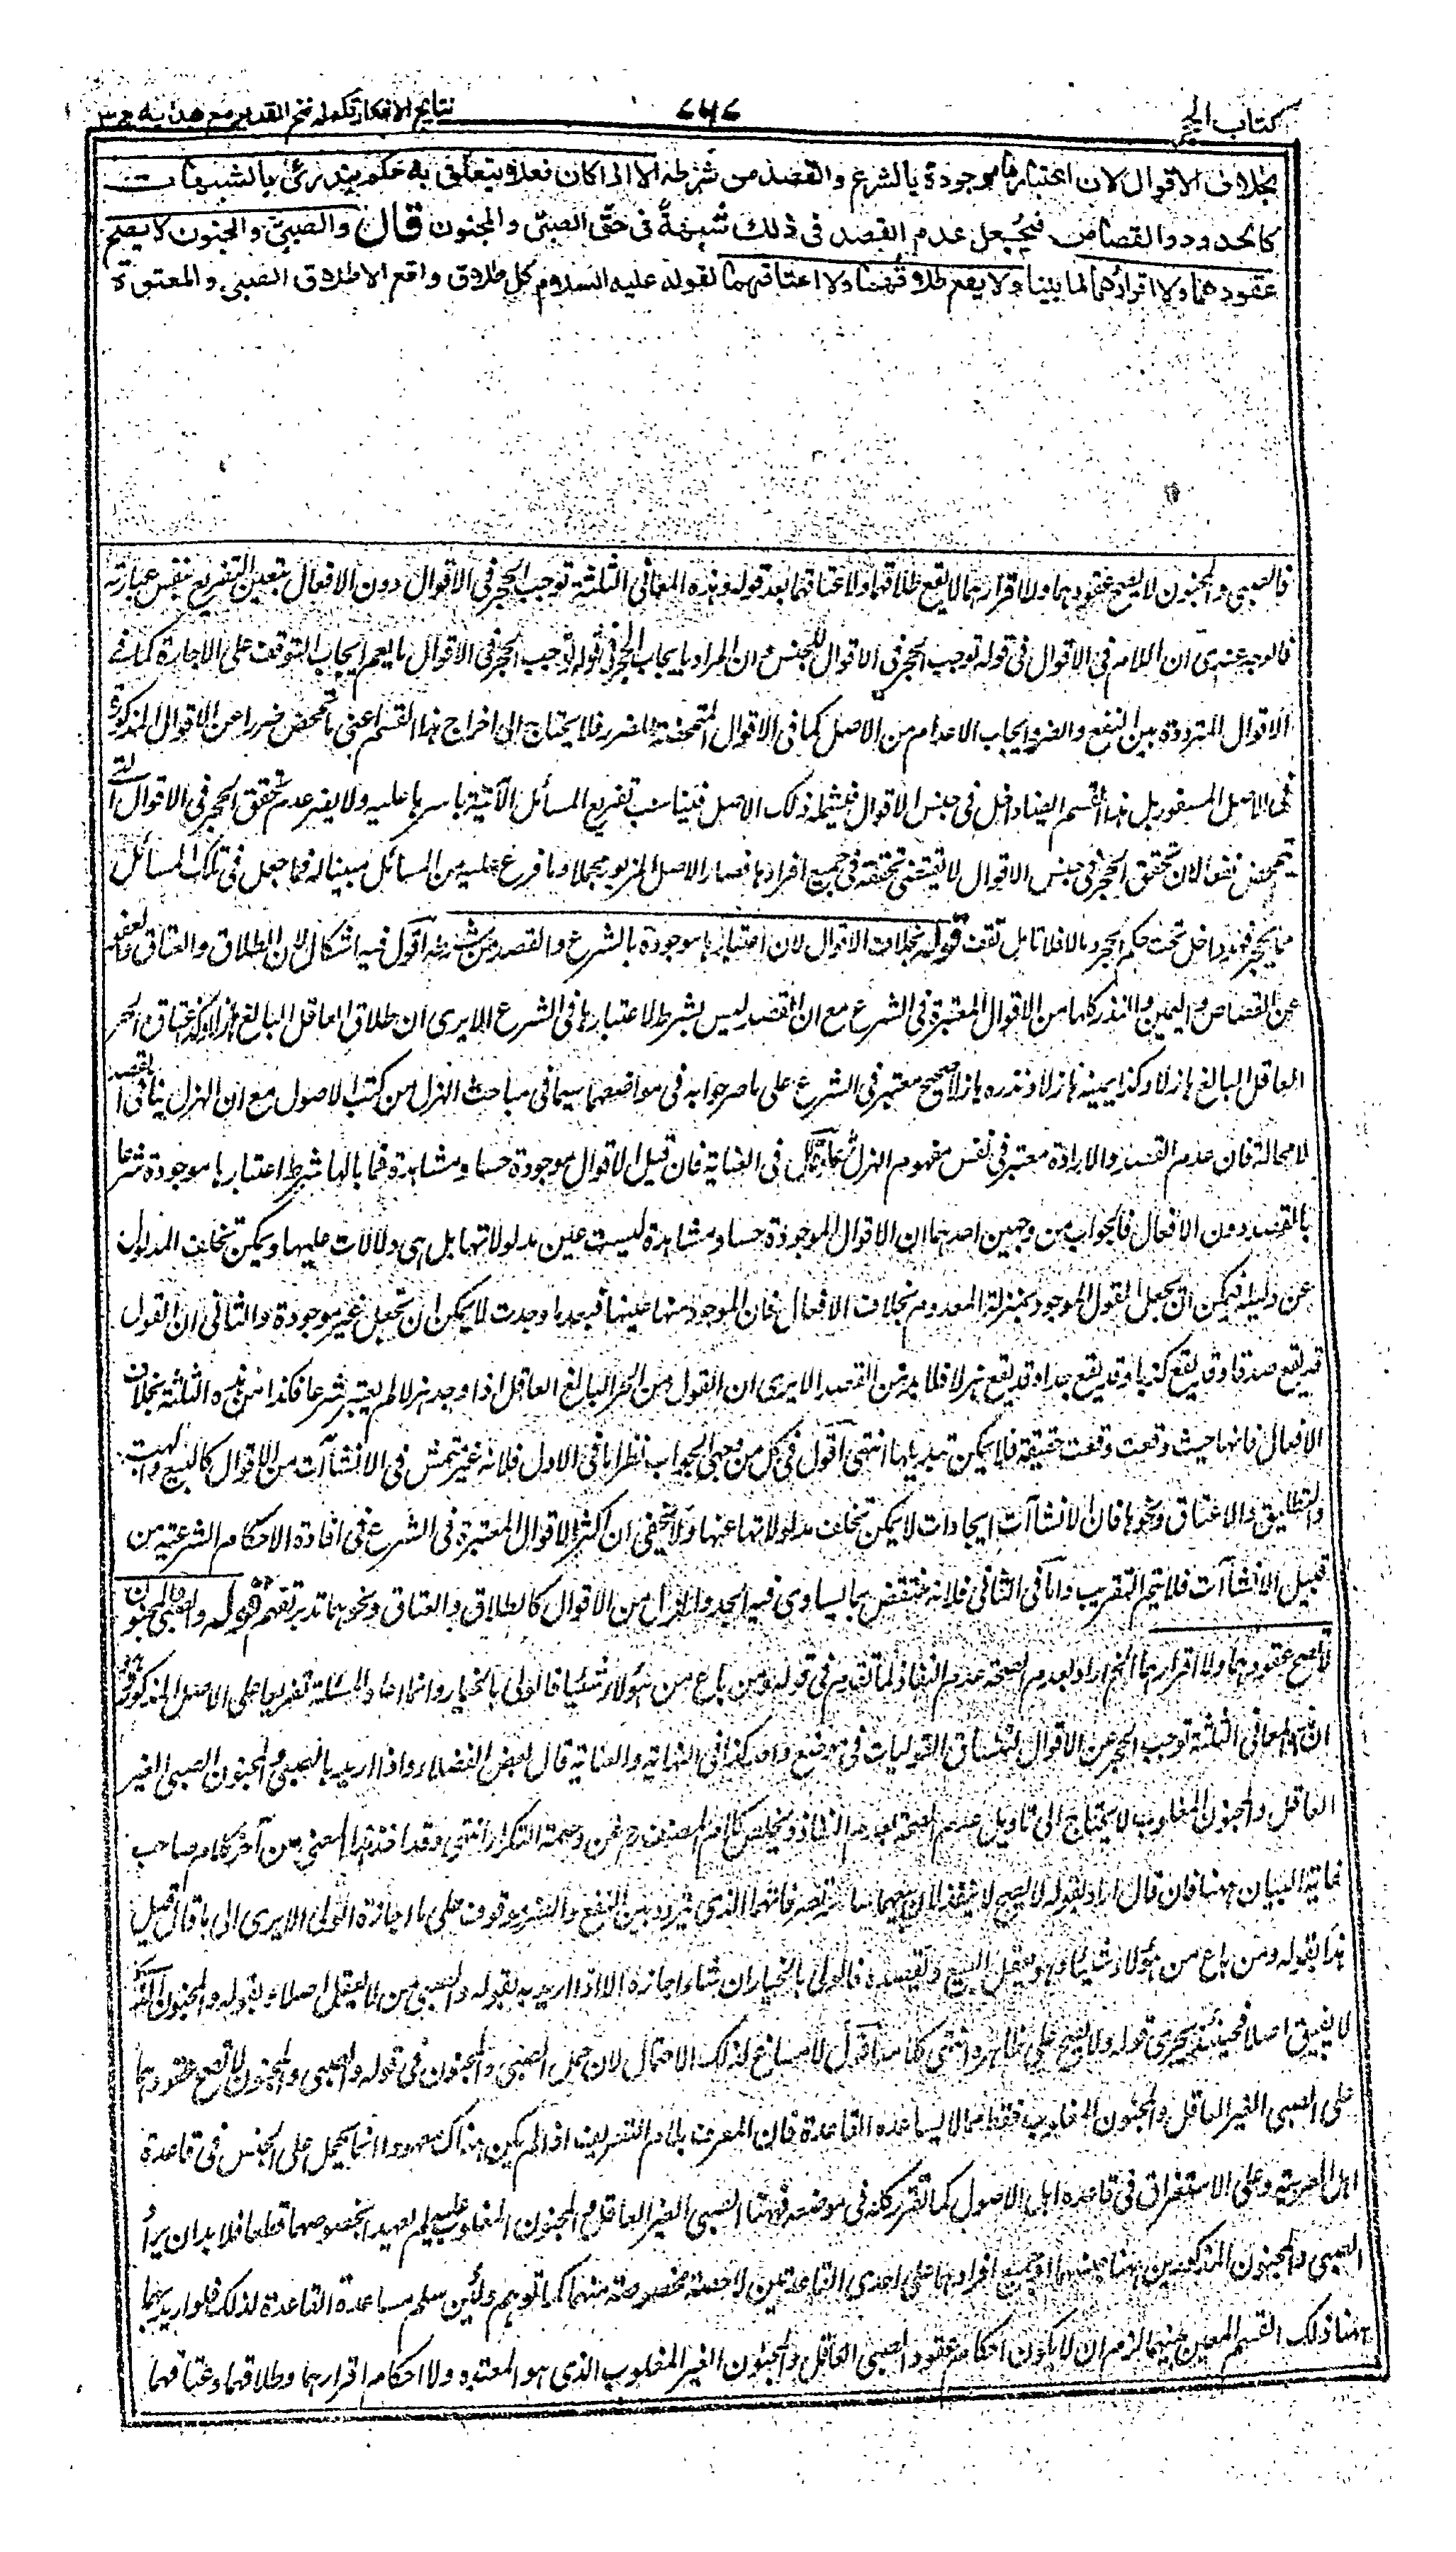 كتاب الحجر
٧٤٧
نتایج الافکار تکمله فتح القدیر مع هدایه ج ٣
بخلاف الاقوال لان اعتبارها موجودة بالشرع والقصد من شرطه الا اذا كان فعلا يتعلق به حكم يندرئ بالشبهات
كالحدود والقصاص فيجعل عدم القصد في ذلك شبهة في حق الصبي والمجنون قال والصبي والمجنون لا يصح
عقودهما ولا اقرارهما لما بينا ولا يقع طلاقهما ولا اعتاقهما لقوله عليه السلام كل طلاق واقع الا طلاق الصبي والمعتوة
فالصبي والمجنون لا يصح عقودهما ولا اقرارهما لا يقع طلاقهما ولا عتاقهما بعد قوله وهذه المعاني الثلثة توجب الحجر في الاقوال دون الافعال يتعين التفريع نفس عبارته
فالوجه عندى ان اللام في الاقوال في قوله توجب الحجر في الاقوال للجنس وان المراد بايجاب الحجر في قوله توجب الحجر في الاقوال ما يعم ايجاب التوقف على الاجازة كما في
الاقوال المترددة بين النفع والضرر وايجاب الاعدام من الاصل كما في الاقوال المتمحضة للضرر فلا يحتاج الى اخراج هذا القسم اعني ما تمحض ضررا عن الاقوال المذكورة
في الاصل المسفور بل هذا القسم ايضا داخل في جنس الاقوال فيشمله ذلك الاصل فيناسب تفريع المسائل الآتية باسرها عليه ولا يضر عدم تحقق الحجر في الاقوال التي
تتمحض نفعا لان تحقق الحجر في جنس الاقوال لا يقتضي تحققه في جميع افرادها فصار الاصل المزبور مجملا وما فرع عليه من المسائل مبينا له فما جعل في تلك المسائل
مما يحجر فهو داخل تحت حكم الحجر وما لا فلا تامل تقف قوله بخلاف الاقوال لان اعتبارها موجودة بالشرع والقصد من شرطه اقول فيه اشكال لان الطلاق والعتاق والعفو
عن القصاص واليمين والنذر كلها من الاقوال المعتبرة في الشرع مع ان القصد ليس بشرط لاعتبارها في الشرع الا يرى ان طلاق العاقل البالغ هازلا وكذا عتاق الحر
العاقل البالغ هازلا وكذا يمينه هازلا ونذره هازلا صحيح معتبر في الشرع على ما صرحوا به في مواضعها سيما في مباحث الهزل من كتب الاصول مع ان الهزل ينافي القصد
لا محالة فان عدم القصد والارادة معتبر في نفس مفهوم الهزل ثم قال في العناية فان قيل الاقوال موجودة حسا ومشاهدة فما بالها شرط اعتبارها موجودة شرعا
بالقصد دون الافعال فالجواب من وجهين احدهما ان الاقوال الموجودة حسا ومشاهدة ليست عين مدلولاتها بل هي دلالات عليها ويمكن تخلف المدلول
عن دليله فيمكن ان يجعل القول الموجود بمنزلة المعدوم بخلاف الافعال فان الموجود منها عينها فبعد ما وجدت لا يمكن ان تجعل غير موجودة والثاني ان القول
قد يقع صدقا وقد يقع كذبا وقد يقع جدا وقد يقع هزلا فلا بد من القصد الا يرى ان القول من الحر البالغ العاقل اذا وجد هزلا لم يعتبر شرعا فكذا من هذه الثلثة بخلاف
الافعال فانها حيث وقعت وقعت حقيقة فلا يمكن تبديلها انتهى اقول في كل من وجهي الجواب نظر اما في الاول فلانه غير متمش في الانشاآت من الاقوال كالبيع والهبة
والتطليق والاعتاق ونحوها فان الانشاآت ايجادات لا يمكن تخلف مدلولاتها عنها ولا يخفى ان اكثر الاقوال المعتبرة في الشرع في افادة الاحكام الشرعية من
قبيل الانشاآت فلا يتم التقريب واما في الثاني فلانه منتقض بما يساوى فيه الجد والهزل من الاقوال كالطلاق والعتاق ونحوهما تدبر تفهم قوله والصبي والمجنون
لا يصح عقودهما ولا اقرارهما الخ اراد بعدم الصحة عدم النفاذ لما تقدم في قوله ومن باع من هؤلاء شيئا فالولي بالخيار وانما اعاد المسئلة تفريعا على الاصل المذكور وهو
ان المعاني الثلثة توجب الحجر عن الاقوال لينساق القوليات في موضع واحد كذا في النهاية والعناية قال بعض الفضلاء واذا اريد بالصبي والمجنون الصبي الغير
العاقل والمجنون المغلوب لا يحتاج الى تاويل عدم الصحة بعدم النفاذ ويخلص كلام المصنف رح عن وصمة التكرار انتهى وقد اخذ هذا المعنى من آخر كلام صاحب
غاية البيان ههنا فانه قال اراد بقوله لا يصح لا ينفذ لان تصرفاتهما الذي تردد بين النفع والضرر موقوف على اجازة الولي الا يرى الى ما قال قبيل
هذا بقوله ومن باع من هؤلاء شيئا وهو يعقل البيع ويقصده فالولي بالخيار ان شاء اجازه الا اذا اريد به بقوله والصبي من لا يعقل اصلا وبقوله والمجنون الذي
لا يفيق اصلا فحينئذ يجرى قوله ولا يصح على ظاهره انتهى كلامه اقول لا مساغ لذلك الاحتمال لان حمل الصبي والمجنون في قوله والصبي والمجنون لا تصح عقودهما
على الصبي الغير العاقل والمجنون المغلوب فقط مما لا يساعده القاعدة فان المعرف بلام التعريف اذا لم يكن هناك معهود انما يحمل على الجنس في قاعدة
اهل العربية وعلى الاستغراق في قاعدة اهل الاصول كما تقرر كله في موضعه فههنا الصبي الغير العاقل والمجنون المغلوب عليه لم يعهد بخصوصهما قطعا فلا بد ان يراد
الصبي والمجنون المذكورين ههنا جنسهما او جميع افرادهما على احدى القاعدتين لا حصة مخصوصة منهما كما توهم ولئن سلم مساعدة القاعدة لذلك فلو اريد بهما
ههنا ذلك القسم المعين منهما لزم ان لا يكون احكام عقود الصبي العاقل والمجنون الغير المغلوب الذي هو المعتوه ولا احكام اقرارهما وطلاقهما وعتاقهما